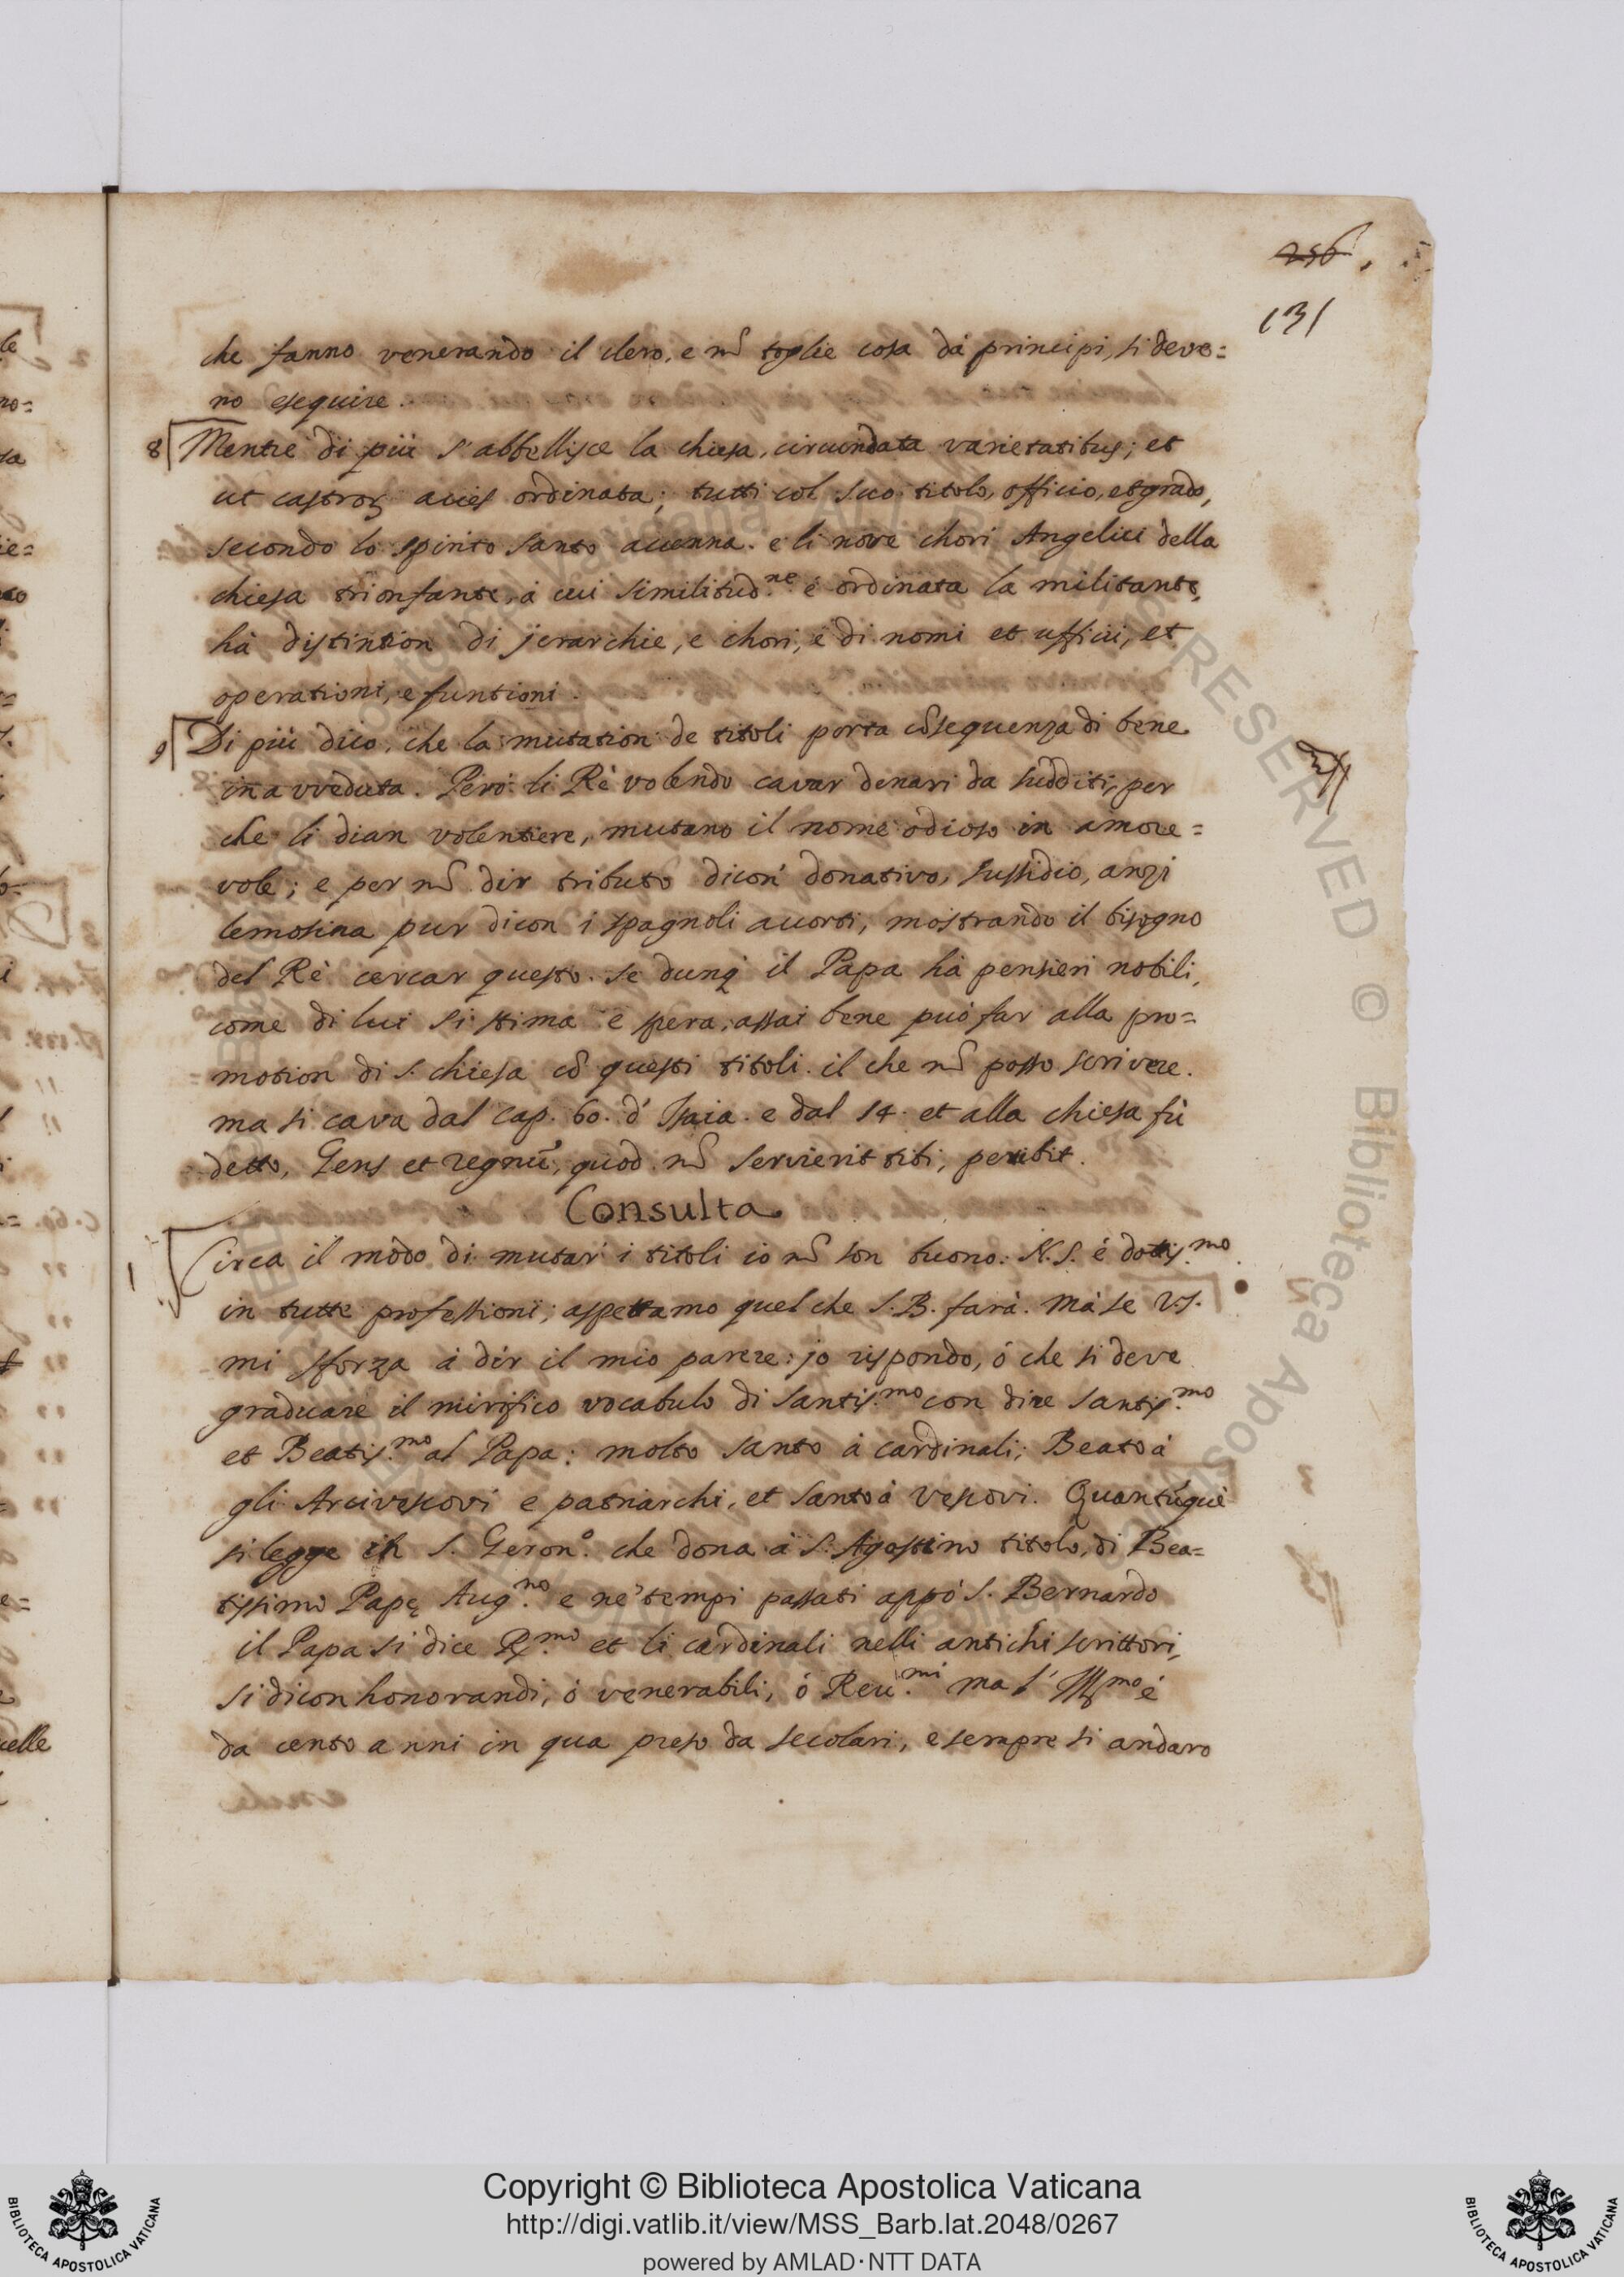 256.
131
che fanno venerando il clero, e nõ toglie cosa dà principi, si deve=
no esequire.
8 Mentre di più s'abbellisce la chiesa, circundata varietatibus; et
ut castroꝝ acies ordinata; tutti col suo titolo, officio, et grado,
secondo lo spirito santo accenna. e li nove chori Angelici della
chiesa trionfante, à cui similitud.ne è ordinata la militante,
hà distintion di jerarchie, e chori, e di nomi et ufficii, et
operationi, e funtioni.
9 Di più dico, che la mutation de titoli porta cõsequenza di bene
inavveduta. Però li Rè volendo cavar denari da sudditi, per
che li dian volentiere, mutano il nome odioso in amore=
vole; e per nõ dir tributo dicon donativo, sussidio, anzi
lemosina pur dicon i spagnoli accorti, mostrando il bisogno
del Rè cercar questo. se dunq̃ il Papa hà pensieri nobili,
come di lui si stima e spera, assai bene può far alla pro=
motion di S. chiesa cõ questi titoli. il che nõ posso scrivere.
ma si cava dal cap. 60. d'Isaia. e dal 14. et alla chiesa fù
detto, Gens et regnũ, quod nõ servierit tibi, peribit.
Consulta
1 Circa il modo di mutar i titoli io nõ son buono. N.S. è dottis.mo
in tutte professioni; aspettamo quel che S.B. farà. Mà se V.S.
mi sforza à dir il mio parere: jo rispondo, ò che si deve
graduare il mirifico vocabulo di santis.mo con dire santis.mo
et Beatis.mo al Papa: molto santo à cardinali; Beato à
gli Arcivescovi e patriarchi, et santo à vescovi. Quantũque
si legge in S. Geron.o che dona à S. Agostino titolo, di Bea=
tissimo Papę Aug.no e ne' tempi passati appò S. Bernardo
il Papa si dice R.mo et li cardinali nelli antichi scrittori,
si dicon honorandi, ò venerabili, ò Reu.mi ma l'Ill.mo è
da cento anni in qua preso da secolari, e sempre si andaro
Copyright © Biblioteca Apostolica Vaticana
http://digi.vatlib.it/view/MSS_Barb.lat.2048/0267
powered by AMLAD·NTT DATA